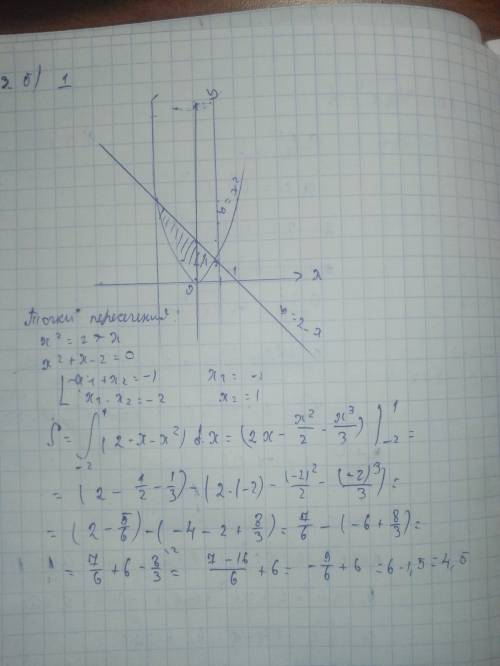 2 б) 1
y
y = x²
0
1
x
y = 2 - x
Точки пересечения:
x² = 2 - x
x² + x - 2 = 0
x₁ + x₂ = -1 x₁ = -1
x₁ · x₂ = -2 x₂ = 1
S = ∫₋₂¹ (2 - x - x²) dx = (2x - x²/2 - x³/3) |₋₂¹ =
= (2 - 1/2 - 1/3) - (2·(-2) - (-2)²/2 - (-2)³/3) =
= (2 - 5/6) - (-4 - 2 + 8/3) = 7/6 - (-6 + 8/3) =
= 7/6 + 6 - 8/3 = (7 - 16)/6 + 6 = -9/6 + 6 = 6 - 1,5 = 4,5